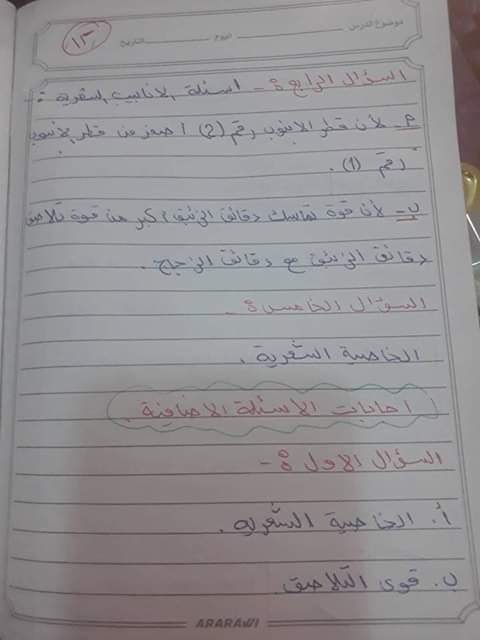 موضوع الدرس اليوم التاريخ
١٣
السؤال الرابع :- اسئلة الانابيب الشعرية :-
م- لأن قطر الانبوب رقم (2) اصغر من قطر الانبوب
رقم (1).
ب- لأن قوة تماسك دقائق الزئبق اكبر من قوة تلاصق
دقائق الزئبق مع دقائق الزجاج.
السؤال الخامس :-
الخاصية الشعرية.
اجابات الاسئلة الاضافية
السؤال الاول :-
أ. الخاصية الشعرية.
ب. قوى التلاصق
ARARAWI